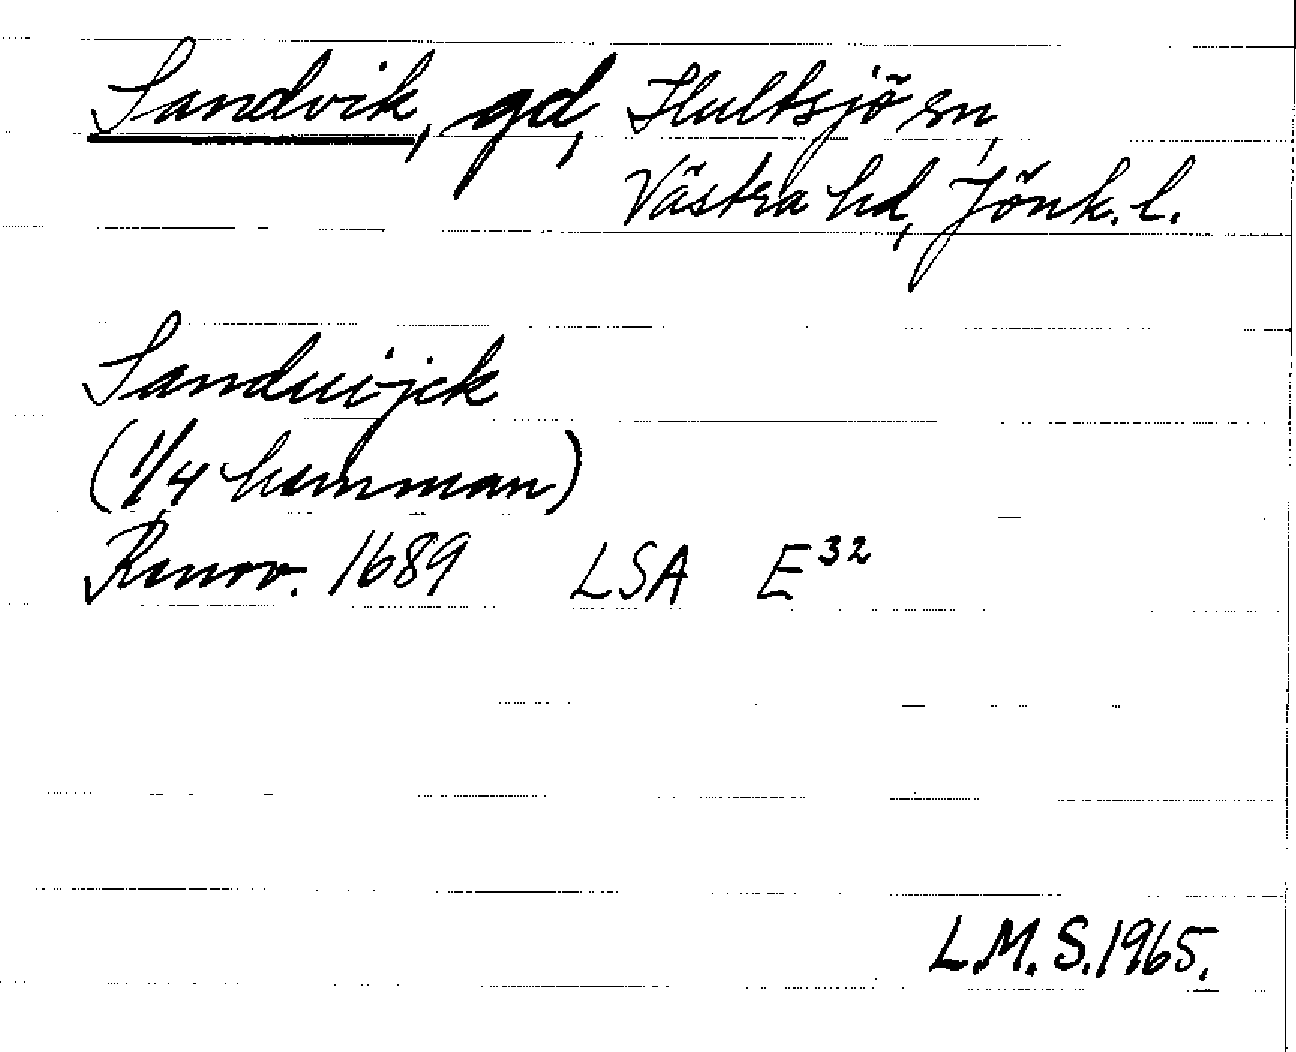 Sandvik, gd, Hultsjö sn,
Västra hd, Jönk. l.
Sandwijck
(1/4 hemman)
Renov. 1689 LSA E32
L.M.S. 1965.